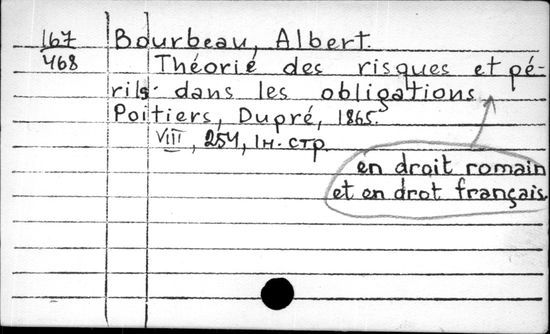 167
468
Bourbeau, Albert.
Théorie des risques et pé-
rils dans les obligations
Poitiers, Dupré, 1865.
VIII, 254, 1н. стр.
en droit romain
et en drot français